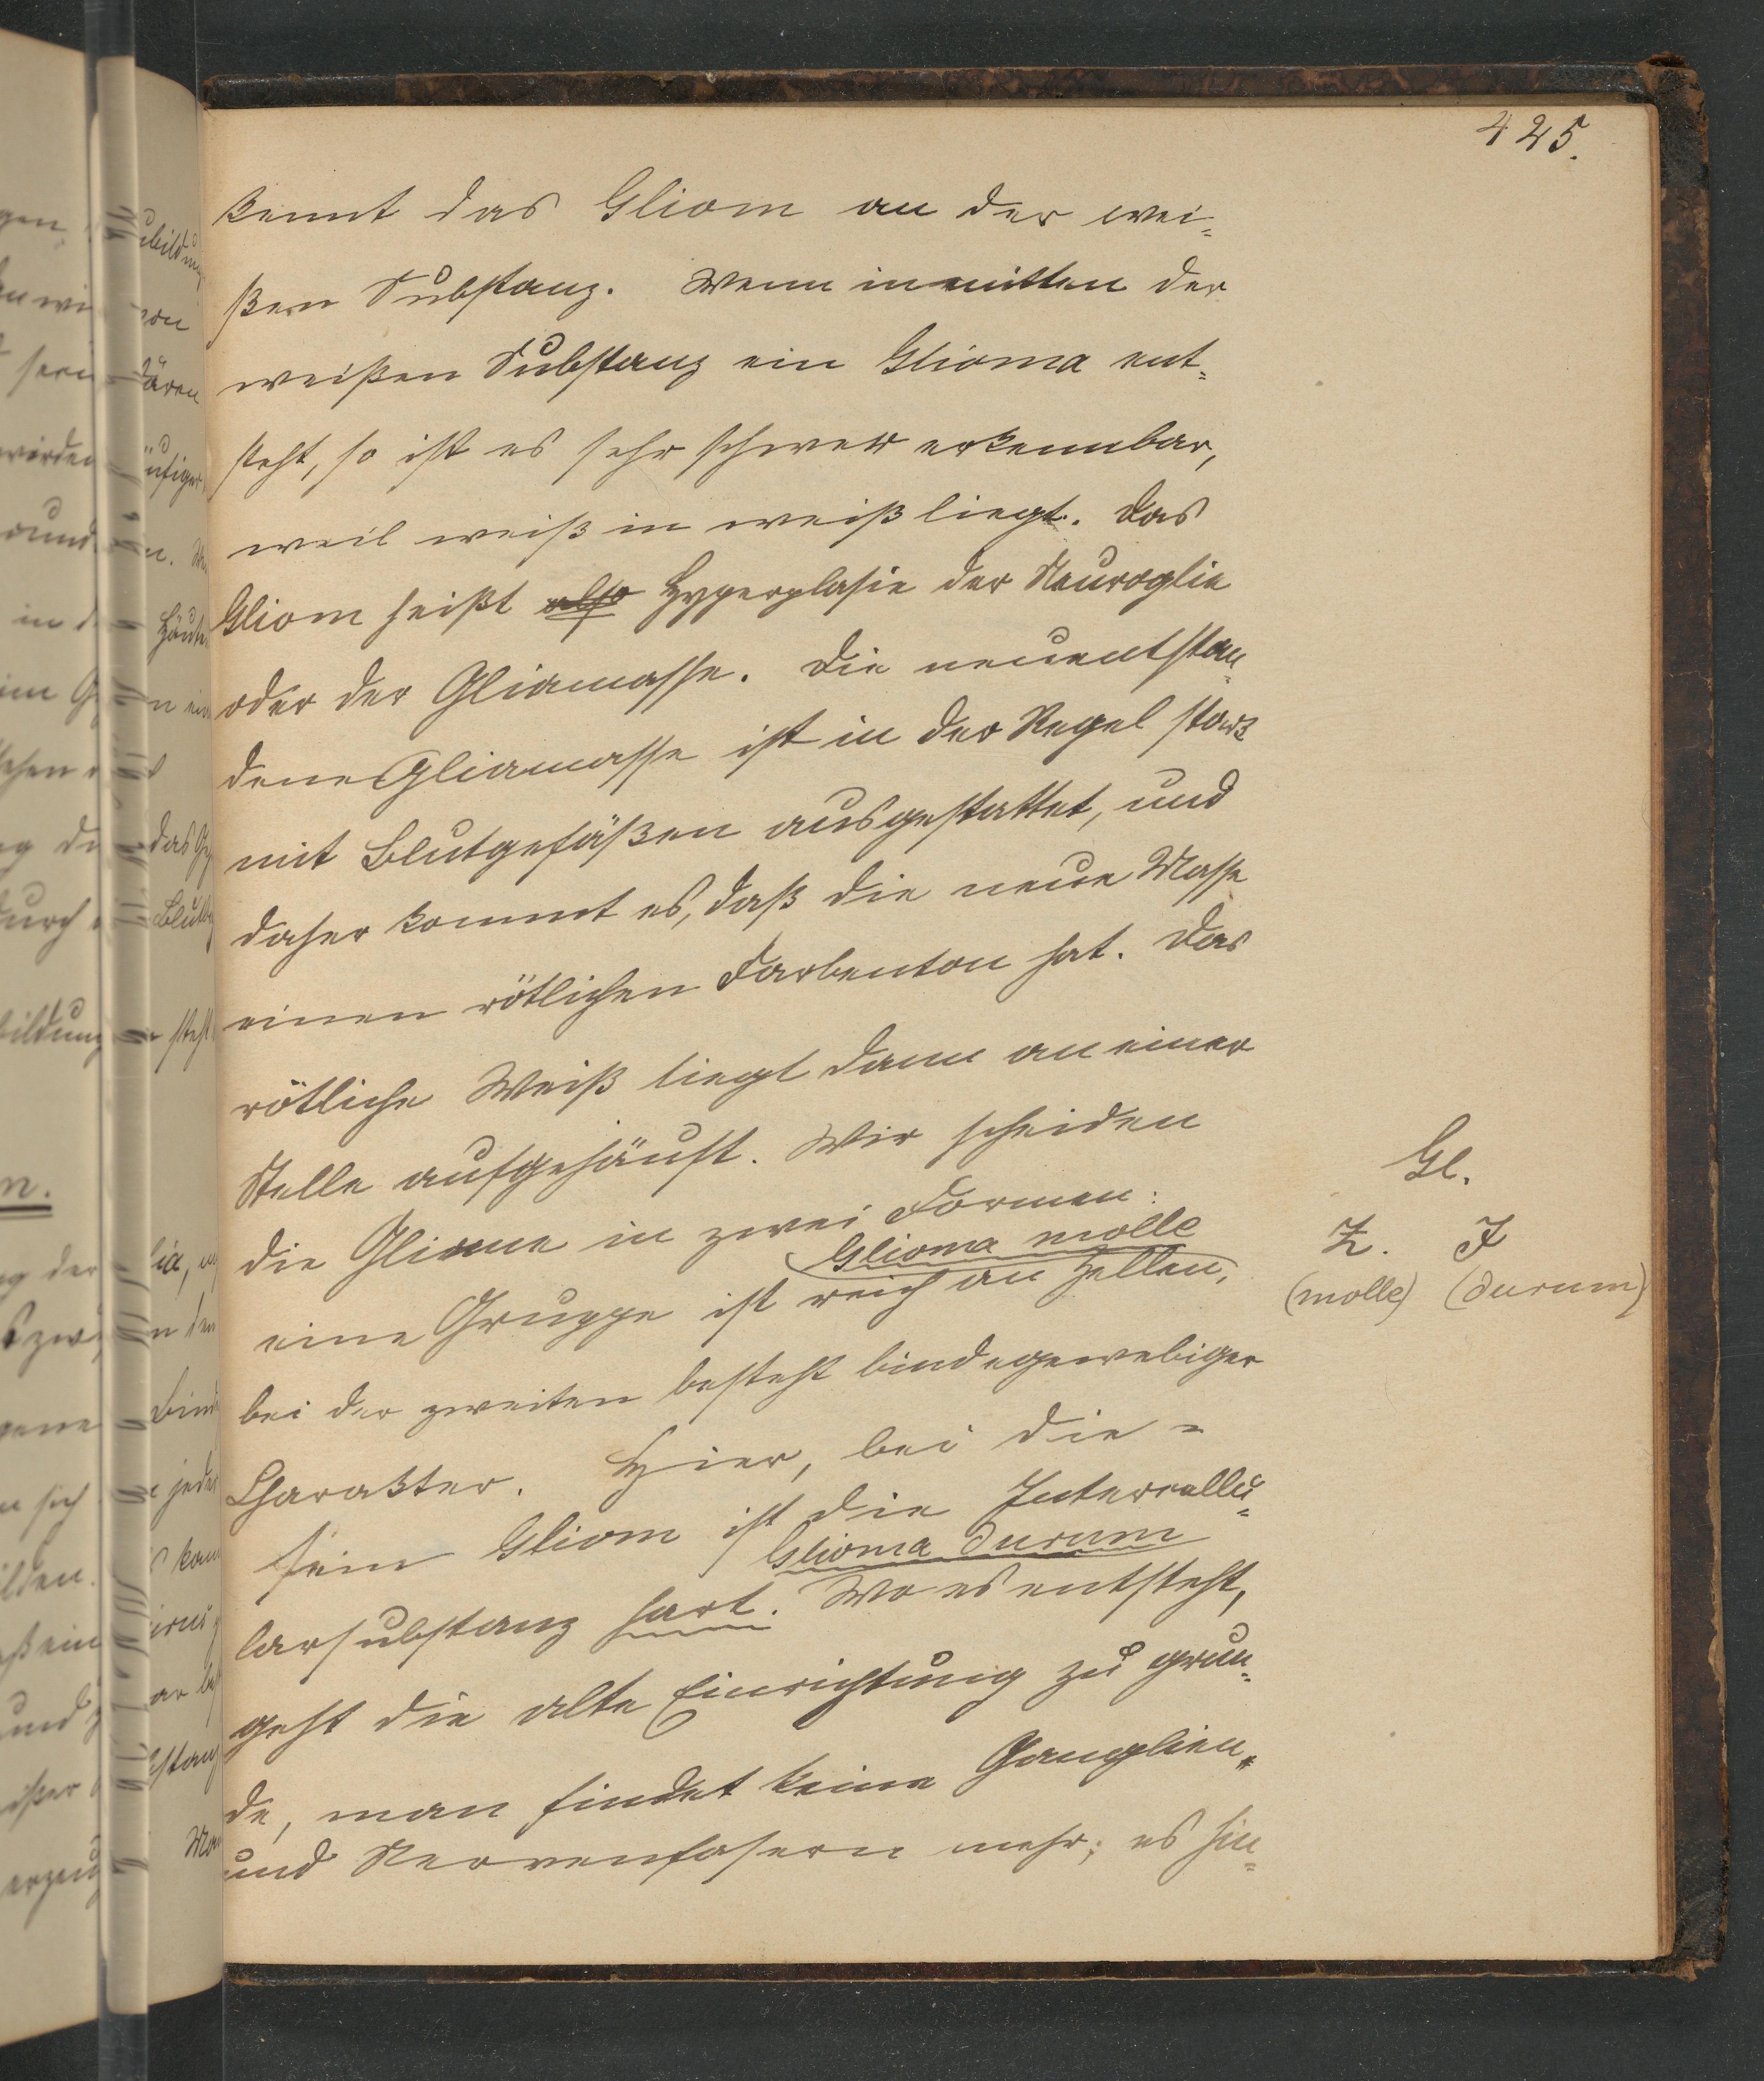 425.
kennt das Gliom an der wei-
ßen Substanz. Wenn inmitten der
weißen Substanz ein Glioma ent-
steht, so ist es sehr schwer erkennbar,
weil weiß in weiß liegt. Das
Gliom heißt also Hyperplasie der Neuroglie
oder der Gliamasse. Die neuentstan-
dene Gliamasse ist in der Regel stark
mit Blutgefäßen ausgestattet, und
daher kommt es, daß die neue Masse
einen rötlichen Farbenton hat. Das
rötliche Weiß liegt dann an einer
Stelle aufgehäuft. Wir scheiden
die Gliome in zwei Formen:
Glioma molle
eine Gruppe ist reich an Zellen,
bei der zweiten besteht bindegewebiger
Charakter. Hier, bei die-
sem Gliom ist die Intercellu-
Glioma durum
larsubstanz hart. Wo es entsteht,
geht die alte Einrichtung zu grun-
de, man findet keine Ganglien-
und Nervenfasern mehr; es sin-
Gl.
Z. I
(molle) (durum)